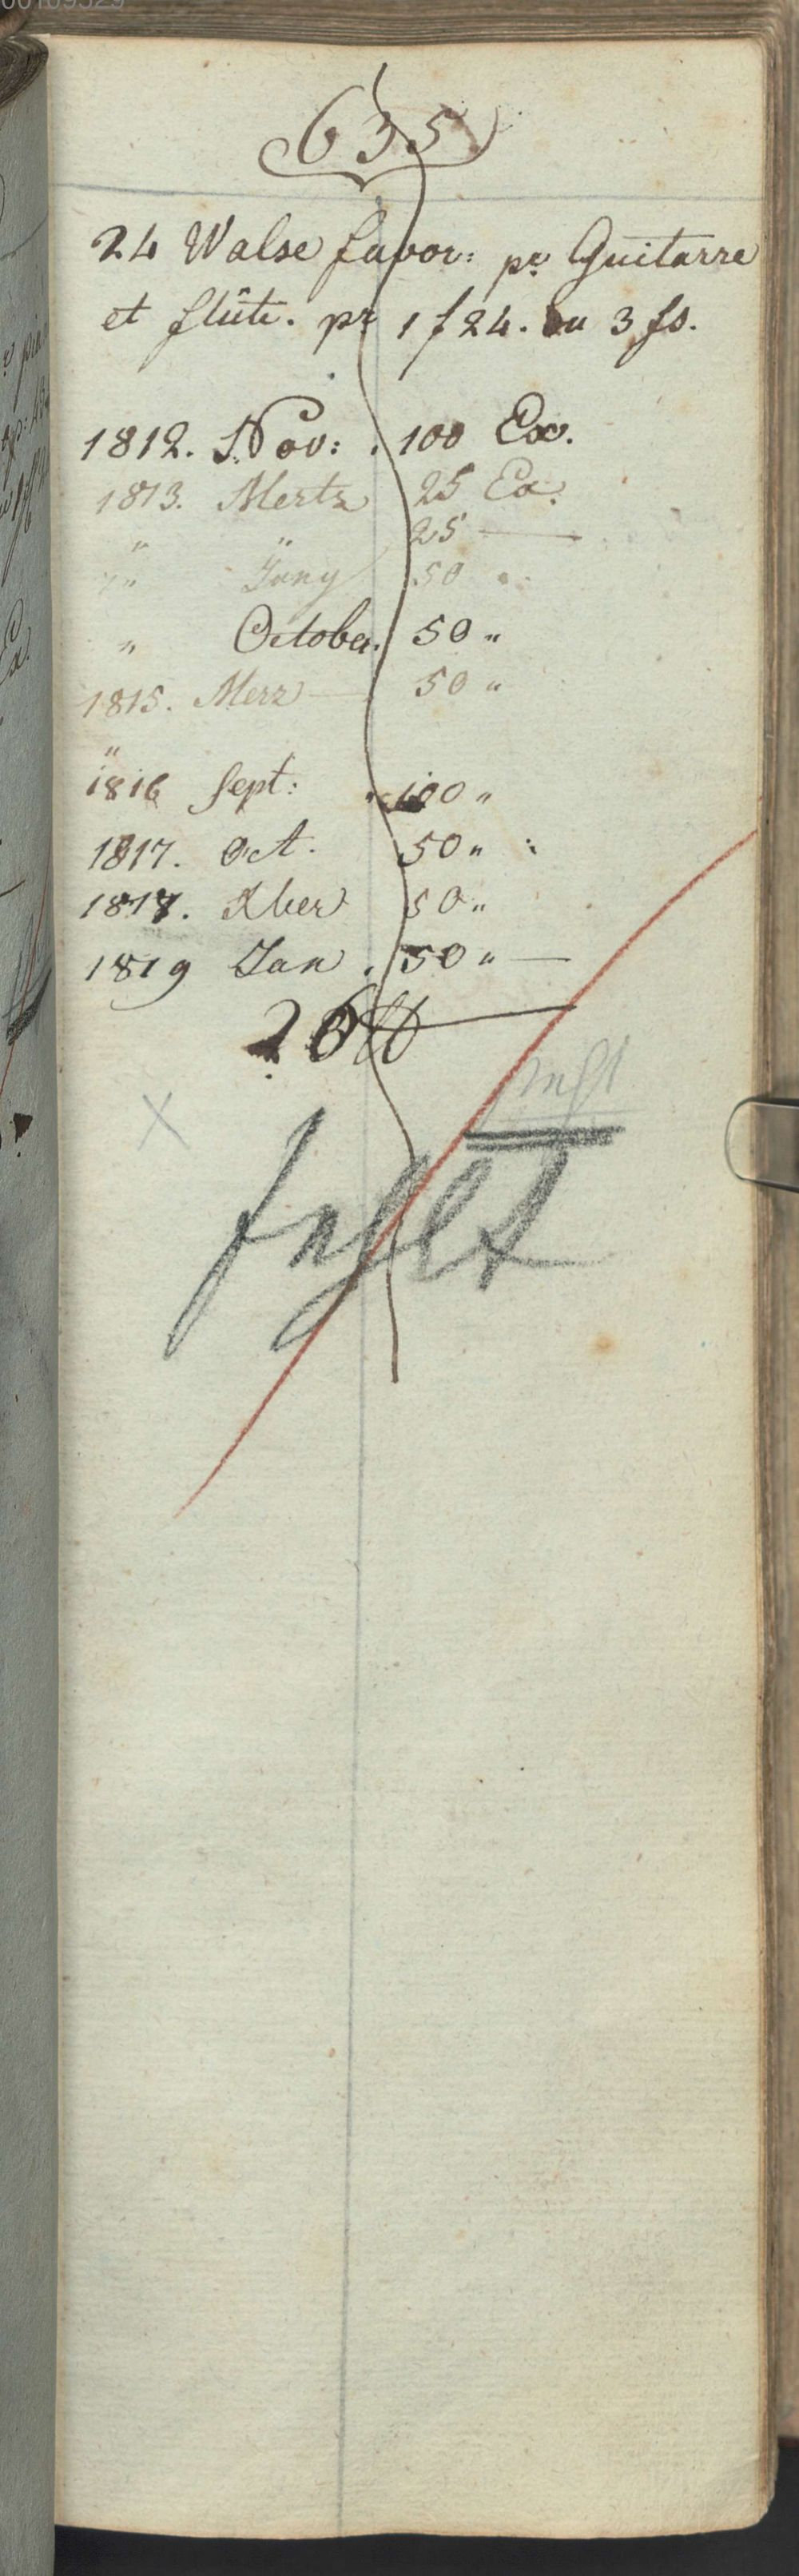 635
24 Walse favor: pr Guitarre
et flûte. pr 1 f 24. ou 3 fs.
1812. Nov: . 100 Ex.
1813. Mertz 25 Ex.
" " 25 —
" Juny 50 "
" October. 50 "
1815. Merz — 50 "
"
1816 Sept: . 100 "
1817. Oct. 50 "
1817. Xber 50 "
1819 Jan . 50 " —
fehlt